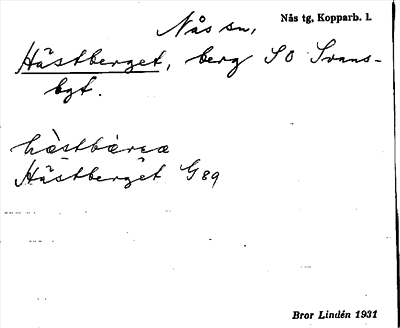 Nås sn,
Nås tg, Kopparb. l.
Hästberget, berg SO Svans-
bgt.
hästbärɛa
Hästberget G89
Bror Lindén 1931